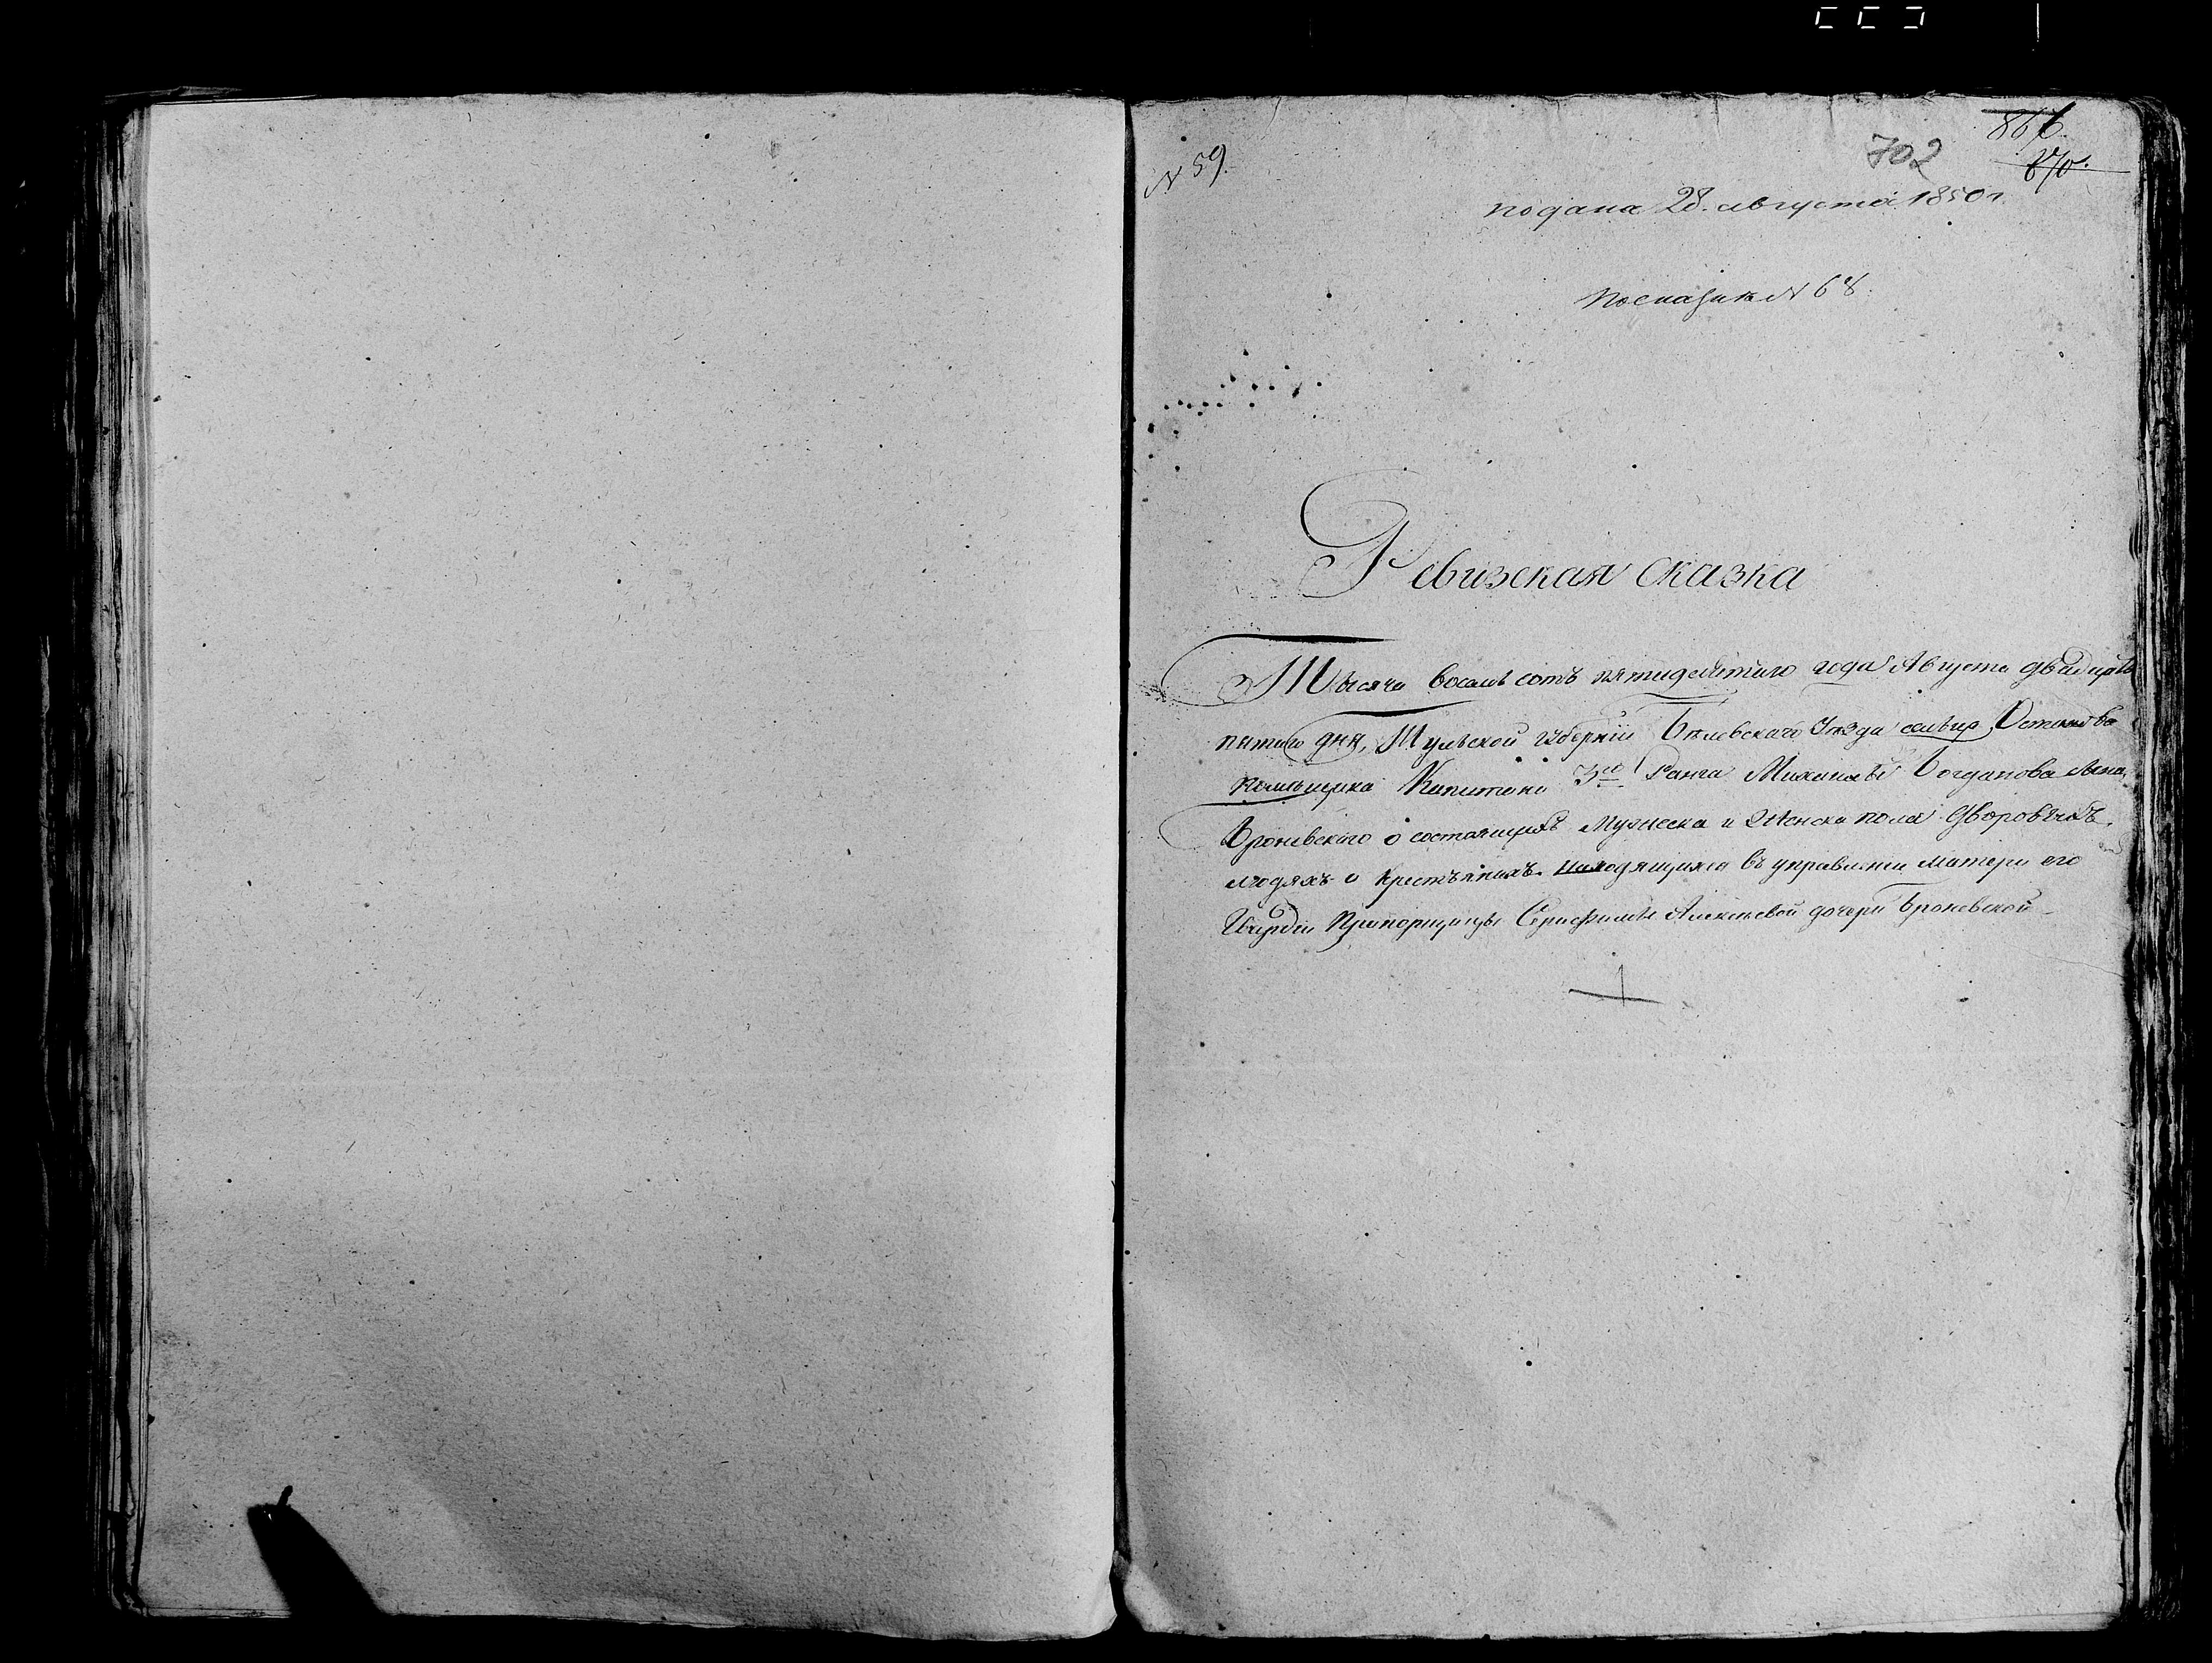 N 59.
702
866
870.
подана 28. августа 1850 г.
По сказке N 68.
Ревизская сказка
Тысяча восемь сотъ пятидесятаго года Августа двадцать
пятаго дня, Тульской губерніи Белевскаго Уезда сельца
помещика Капитана 3го Ранга Михаила Богданова сына
Броневскаго о состоящихъ Мужеска и Женска пола дворовыхъ
людяхъ и крестьянахъ находящихся въ управленіи матери его
Гвардіи Прапорщицы Серафимы Алексеевой дочери Броневской